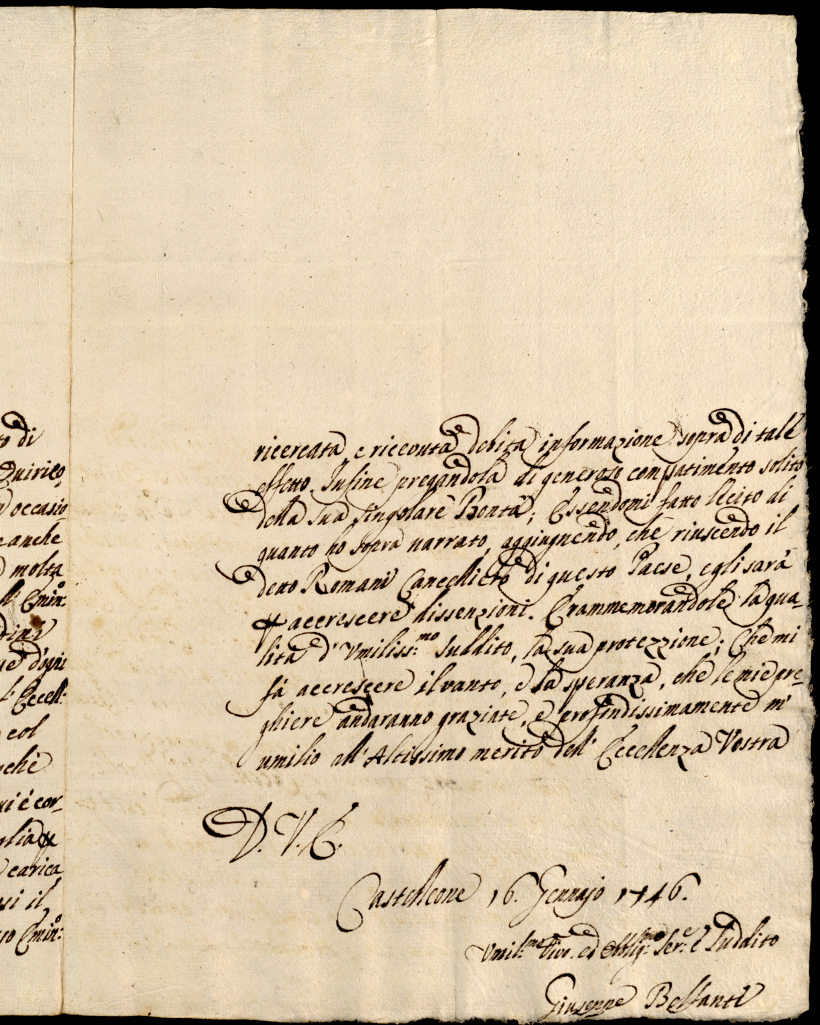 to di
Quirico,
occasio
e anche
molta
ll' Emin:o
d'ogni
l'Eccell:
col
chè
xi è cor-
glia
carica
si il
Emin:o
ricercata, e riceuuta debita informazione sopra di tall
effetto. Infine pregandola di generoso compatimento solito
della sua singolare Bontà; Essendomi fatto lecito di
quanto hò soprà narrato, aggiugnendo, chè riuscendo il
detto Romani Cancelliere di questo Paese, egli sarà
p accrescere dissenzioni. E rammemorandole la qua-
lità d'Vmiliss:mo Suddito, la sua protezzione; Che mi
fà accrescere il vanto, e la speranza, che le mie pre-
ghiere andaranno graziate, e profondissimamente m'
umilio all'Altissimo merito dell'Eccellenza Vostra
D. V. E.
Castelleone 16. Gennajo 1746.
Vmil:mo Divo. ed Obblig:mo Ser:e e Suddito
Giuseppe Belfanti